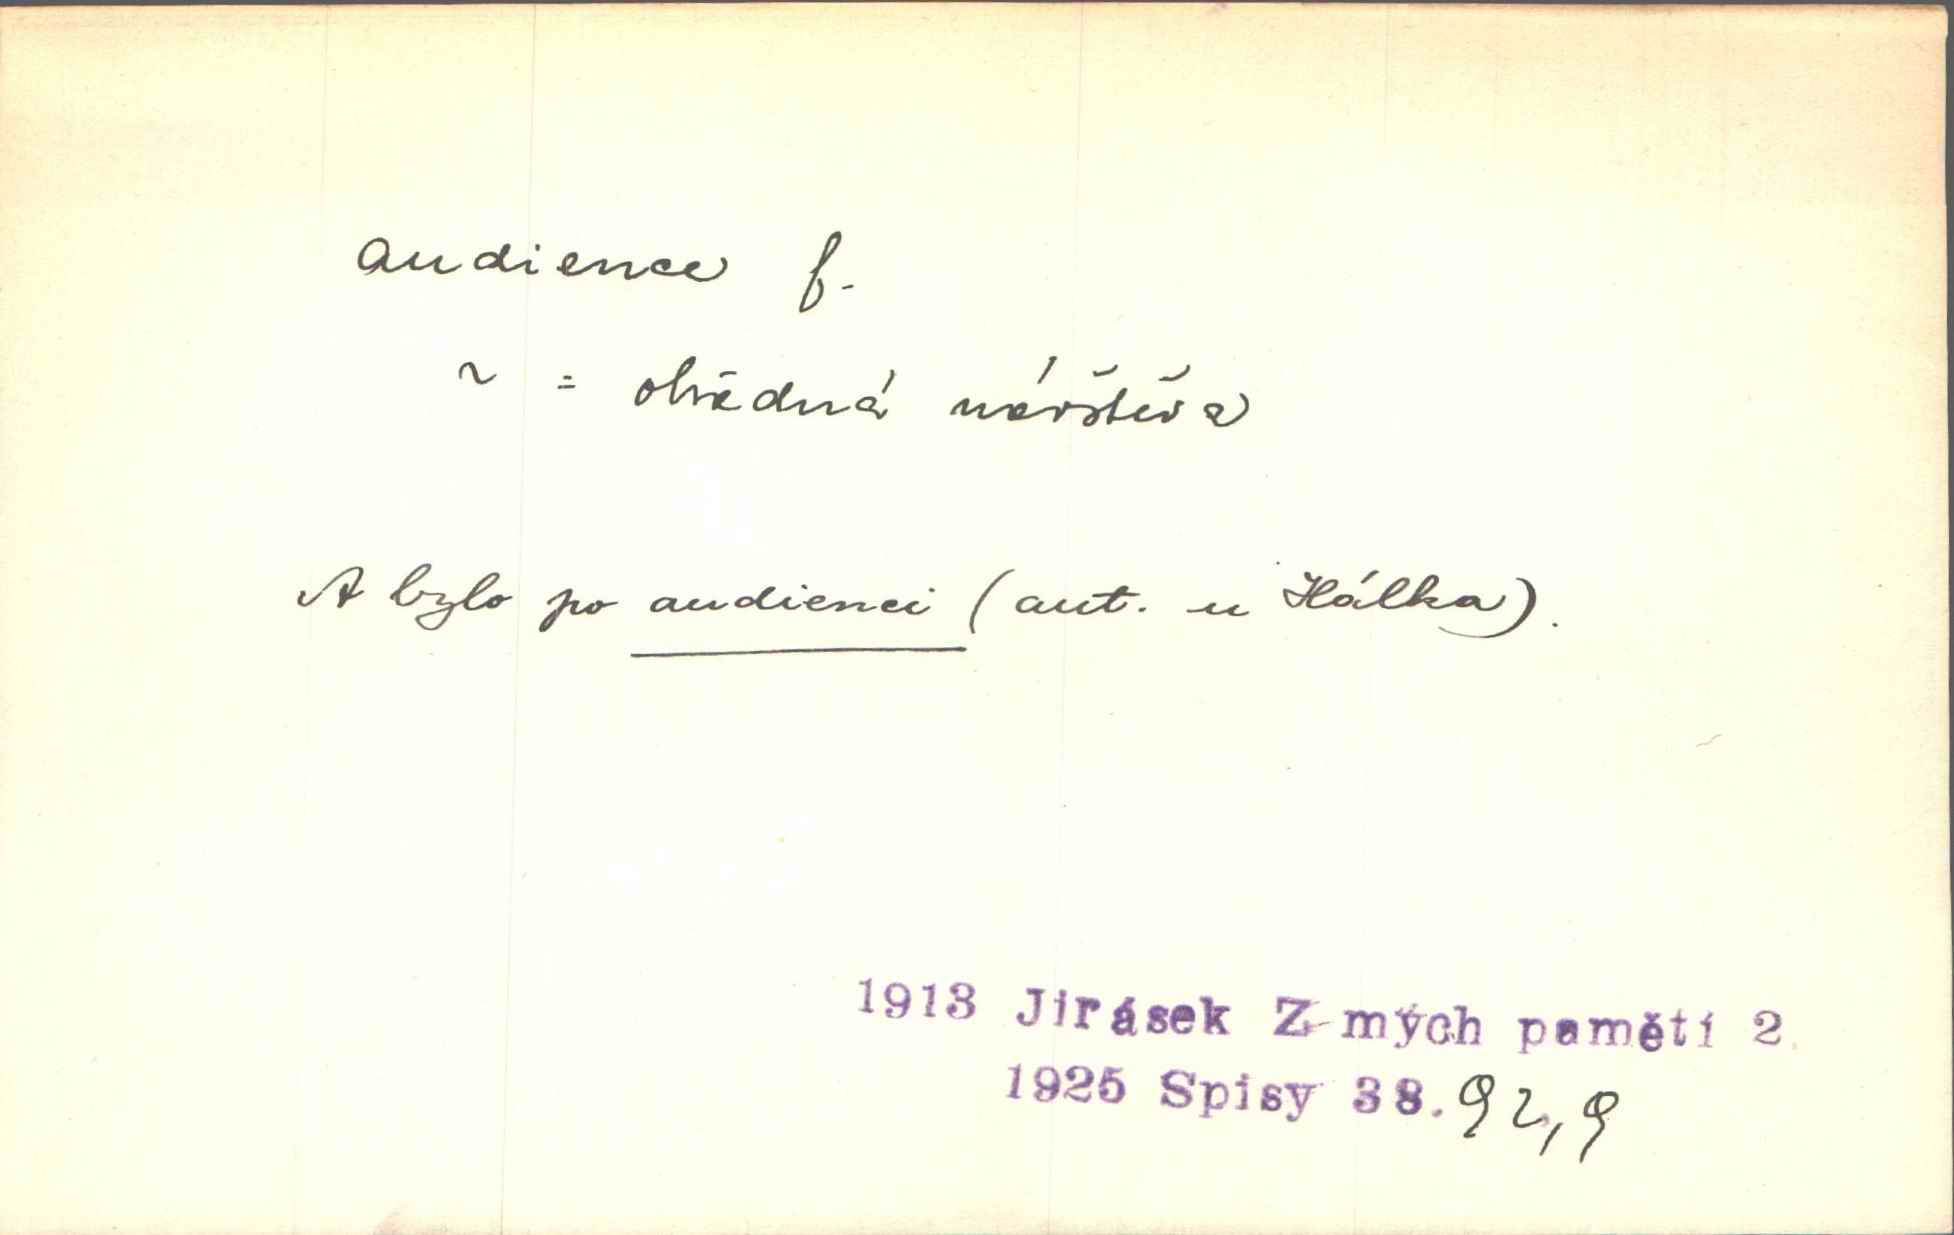 audience f.
~ = obřadná návštěva
A bylo po audienci (aut. u Hálka).
1913 Jirásek Z mých pamětí 2.
1925 Spisy 38. 92, 9